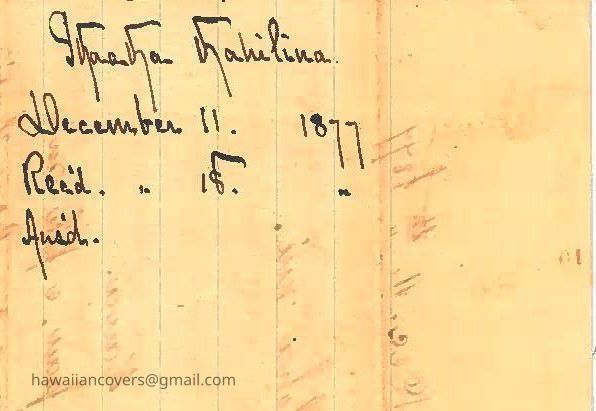 Ikaaka Kahilina.
December 11. 1877
Rec'd. " 18. "
Ans'd.
hawaiiancovers@gmail.com